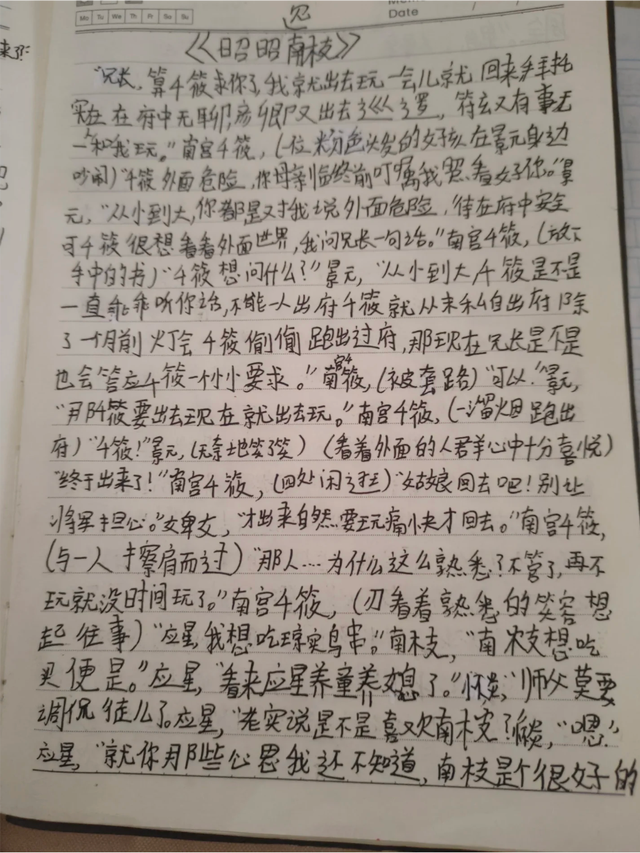 Date
Mo Tu We Th Fr Sa Su
《昭昭南枝》
"兄长,算千筱求你了,我就出去玩一会儿就回来拜托
实在在府中无聊,彦卿又出去巡逻,符玄又有事无
人和我玩。"南宫千筱,(一位粉色头发的女孩在景元身边
吵闹)"千筱外面危险,你母亲临终前叮嘱我照看好你。"景
元,"从小到大,你都是对我说外面危险,待在府中安全
可千筱很想看看外面世界,我问兄长一句话。"南宫千筱,(放下
手中的书)"千筱想问什么?"景元,"从小到大千筱是不是
一直乖乖听你话,不能一人出府千筱就从未私自出府除
了一个月前灯会千筱偷偷跑出过府,那现在兄长是不是
也会答应千筱一个小小要求。"南宫千筱,(被套路)"可以!"景元,
"那千筱要出去现在就出去玩。"南宫千筱,(一溜烟跑出
府)"千筱!"景元,(无奈地笑了笑)(看着外面的人群心中十分喜悦)
"终于出来了!"南宫千筱,(四处闲逛)"姑娘回去吧!别让
将军担心。"女卑女,"才出来自然要玩痛快才回去。"南宫千筱,
(与一人擦肩而过)"那人…为什么这么熟悉?不管了,再不
玩就没时间玩了。"南宫千筱,(刃看着熟悉的笑容想
起往事)"应星,我想吃琼实鸟串。"南枝,"南枝想吃
买便是。"应星,"看来应星养童养媳了。"怀炎,"师父莫要
调侃徒儿了。应星,"老实说是不是喜欢南枝了"怀炎,"嗯."
应星,"就你那些心思我还不知道,南枝是个很好的